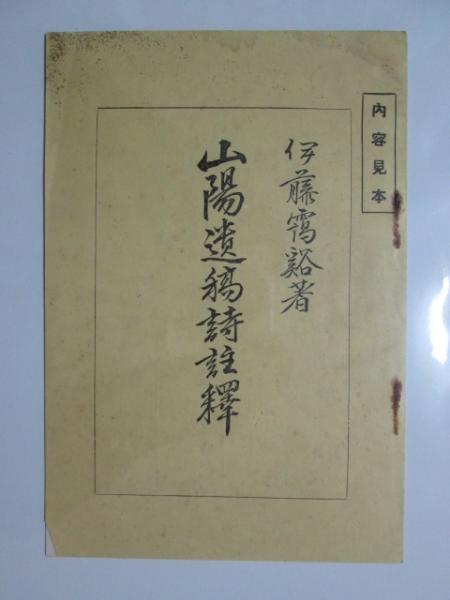 内容見本
伊藤靄谿著
山陽遺稿詩註釋